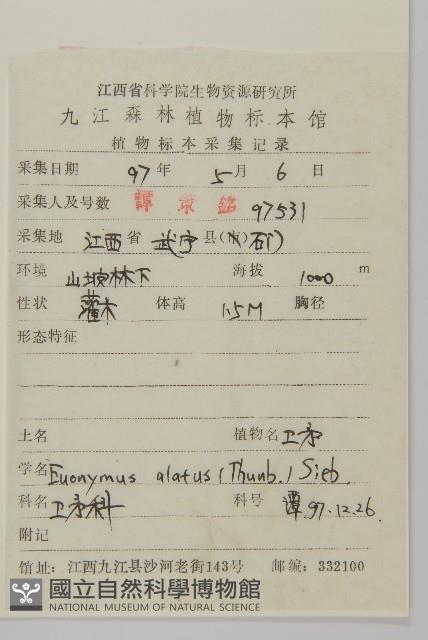 江西省科学院生物资源研究所
九江森林植物标本馆
植物标本采集记录
采集日期 97年 5月 6日
采集人及号数 譚策銘 97531
采集地 江西省 武宁县(市)
环境 山坡林下 海拔 1000 m
性状 灌木 体高 1.5M 胸径
形态特征
土名 植物名 卫矛
学名 Euonymus alatus (Thunb.) Sieb.
科名 卫矛科 科号 譚.97.12.26.
附记
馆址: 江西九江县沙河老街143号 邮编: 332100
國立自然科學博物館
NATIONAL MUSEUM OF NATURAL SCIENCE